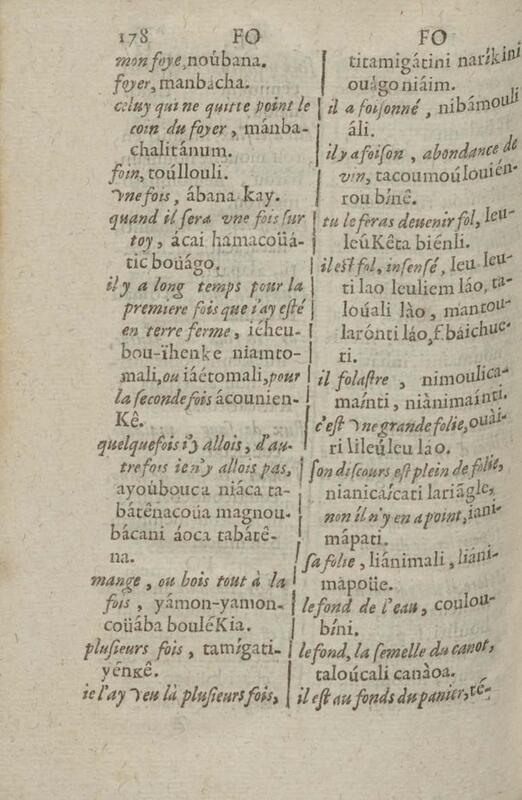 178 FO
mon foye, noúbana.
foyer, manbacha.
celuy qui ne quitte point le
coin du foyer, mánba-
chalitánum.
foin, toúllouli.
Vne fois, ábana kay.
quand il sera vne fois sur
toy, ácai hamacoüá-
tic boüágo.
il y a long temps pour la
premiere fois que i'ay esté
en terre ferme, iéheu-
bou-ïhenke niamto-
mali, ou iáétomali, pour
la seconde fois ácounien-
Kê.
quelquefois i'y allois, d'au-
trefois ie n'y allois pas,
ayoúbouca niáca ta-
bátênacoüa magnou-
bácani áoca tabátê-
na.
mange, ou bois tout à la
fois, yámon-yamon-
coüába bouléKia.
plusieurs fois, tamígati-
yénkê.
ie l'ay veu là plusieurs fois,
FO
titamigátini naríkini
ouágo niáim.
il a foisonné, nibámouli
áli.
il y a foison, abondance de
vin, tacoumoúlouién-
rou bínê.
tu le feras deuenir fol, leu-
leúKêta biénli.
il est fol, insensé, leu leu-
ti lao leuliem láo, ta-
louáli lào, mantou-
larónti láo, f. báichue-
ti.
il folastre, nimoulica-
maínti, niànimaínti.
c'est vne grande folie, ouài-
ri lileúleu láo.
son discours est plein de folie,
nianicaícati lariãgle,
non il n'y en a point, iani-
mápati.
sa folie, liánimali, liáni-
màpoüe.
le fond de l'eau, coulou-
bíni.
le fond, la semelle du canot,
taloúcali canàoa.
il est au fonds du panier, té-